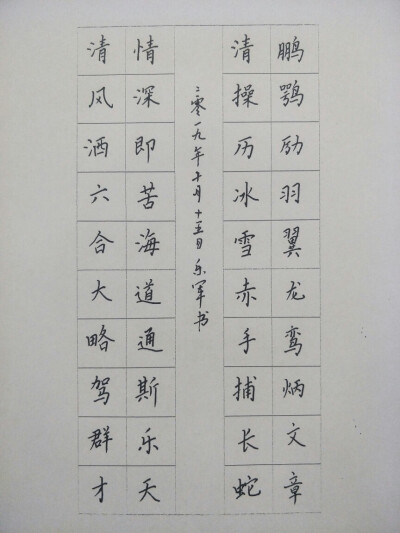 鹏鹗励羽翼龙鸾炳文章
清操历冰雪赤手捕长蛇
二零一九年十月十五日乐军书
情深即苦海道通斯乐天
清风洒六合大略驾群才